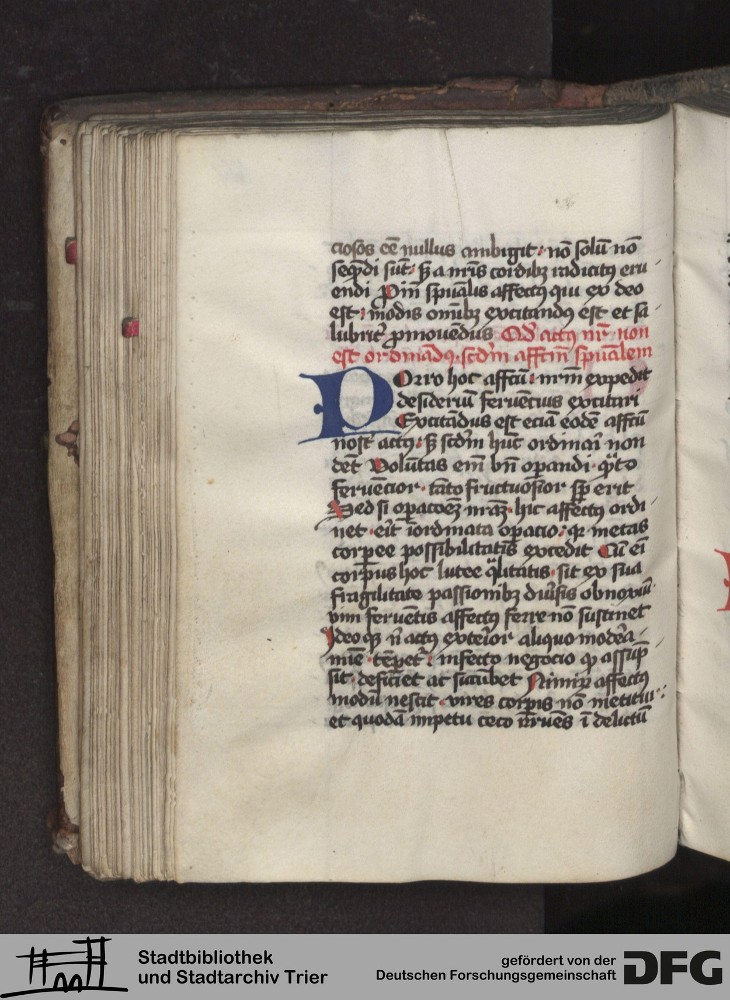 ciosos eē nullus ambigit: nō solū nō
seq̄ndi sūt: sꝫ a nr̄is cordibꝫ radicitꝰ eru
endi Porro sp̄ualis affectꝰ qui ex deo
est: modis omībꝫ excitandus est et sa
lubrit͛ ꝓmouēdus Qd̓ actꝰ nr̄ non
est ordinādꝰ scdm̄ affcm̄ sp̄ualem
POrro hoc affcū nr̄m expedit
desideriū feruēcius excitari
Excitādus est eciā eodē affcū
nost͛ actꝰ: sꝫ scdm̄ hūc ordinari non
dēt Volūtas em̄ bn̄ oꝑandi q̄to
feruēcior tāto fructuosior sp̄ erit
Sed si oꝑacoēꝫ nr̄aꝫ hic affectꝰ ordi
net erit īordinata oꝑacio: qꝛ metas
corꝑee possibilitatis excedit Cū ei
corpus hoc lutee q̄litatis sit ex sua
fragilitate passionibꝫ diu̓sis obnoxiū
vim feruētis affectꝰ ferre nō sustinet
Ideoqꝫ n̄ actꝰ exterior aliquo modera
mīe tēꝑet͛: infecto negocio qḋ assūp
sit deficiet ac sucūbet Nimiꝝ affectꝰ
modū nescit vires corꝑis nō metitur:
et quodā impetu ceco irruēs ī delictū
Stadtbibliothek
und Stadtarchiv Trier
gefördert von der
Deutschen Forschungsgemeinschaft
DFG